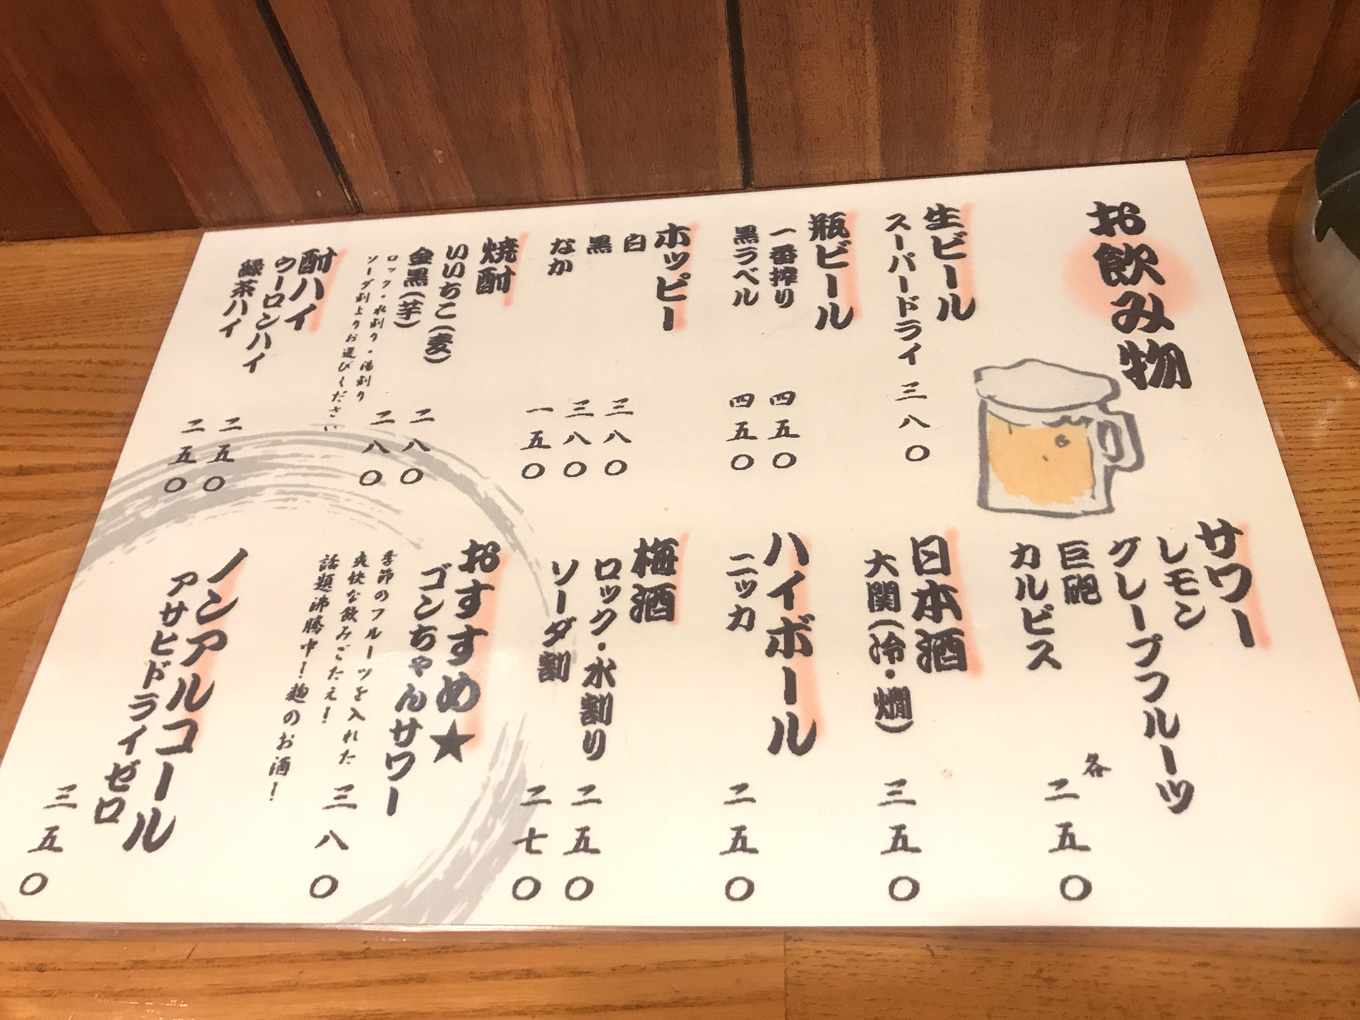 お飲み物
生ビール
スーパードライ 三八〇
瓶ビール
一番搾り 四五〇
黒ラベル 四五〇
ホッピー
白 三八〇
黒 三八〇
なか 一五〇
焼酎
いいちこ(麦) 二八〇
金黒(芋) 二八〇
ロック・水割り・湯割り
ソーダ割よりお選びください
酎ハイ
ウーロンハイ 二五〇
緑茶ハイ 二五〇
サワー
レモン
グレープフルーツ
巨砲
カルピス
各二五〇
日本酒
大関(冷・燗) 三五〇
ハイボール
ニッカ 二五〇
梅酒
ロック・水割り 二五〇
ソーダ割 二七〇
おすすめ★
ゴンちゃんサワー 三八〇
季節のフルーツを入れた
爽快な飲みごたえ!
話題沸勝中!麹のお酒!
ノンアルコール
アサヒドライゼロ 三五〇